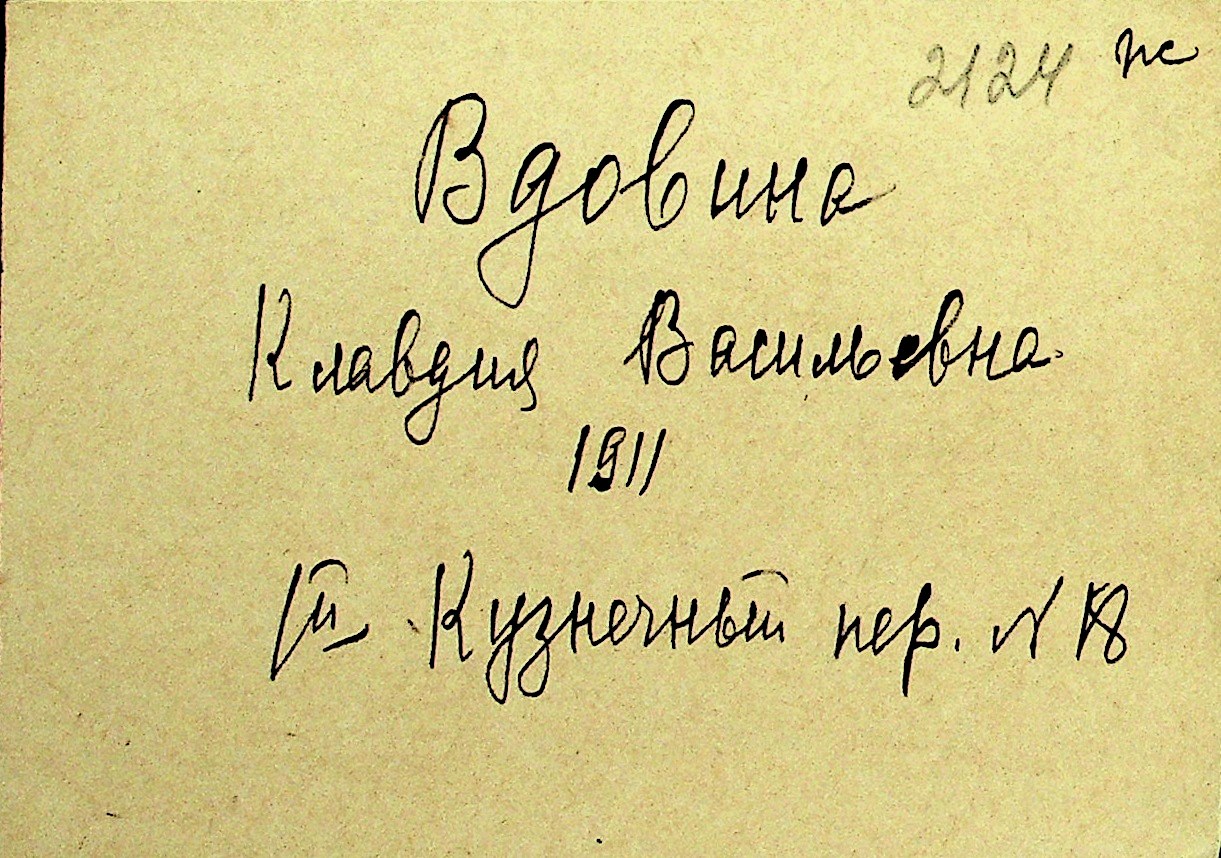 2124 пс
Вдовина
Клавдия Васильевна.
1911
1й Кузнечный пер. N 18